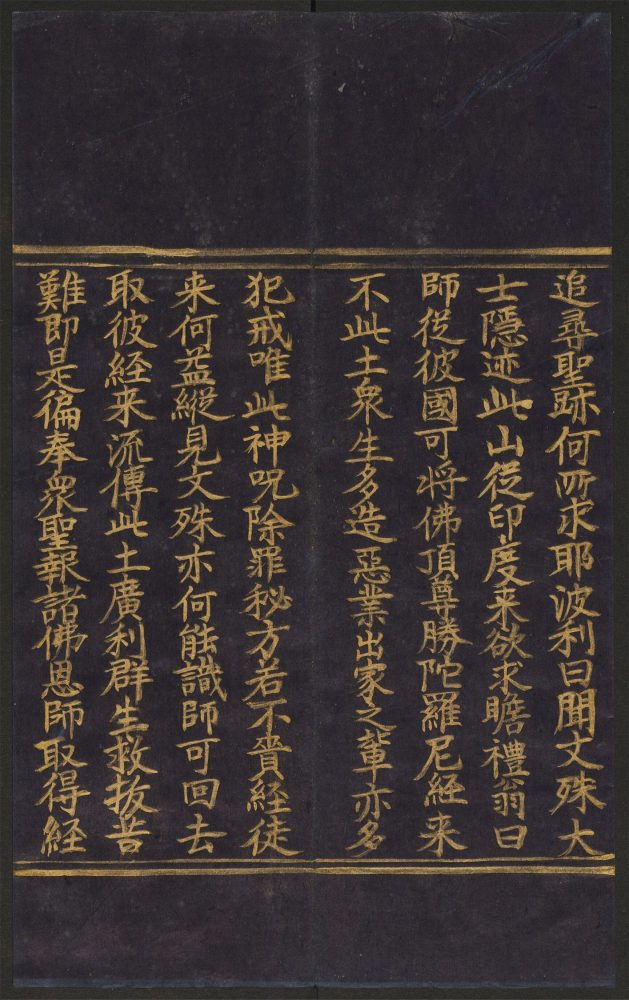 追尋聖跡何所求耶波利曰聞文殊大
士隱迹此山從印度来欲求瞻禮翁曰
師從彼國可将佛頂尊勝陀羅尼經来
不此土衆生多造惡業出家之軰亦多
犯戒唯此神呪除罪秘方若不賫經徒
来何益縱見文殊亦何能識師可回去
取彼経来流傳此土廣利群生救拔苦
難即是徧奉衆聖報諸佛恩師取得経